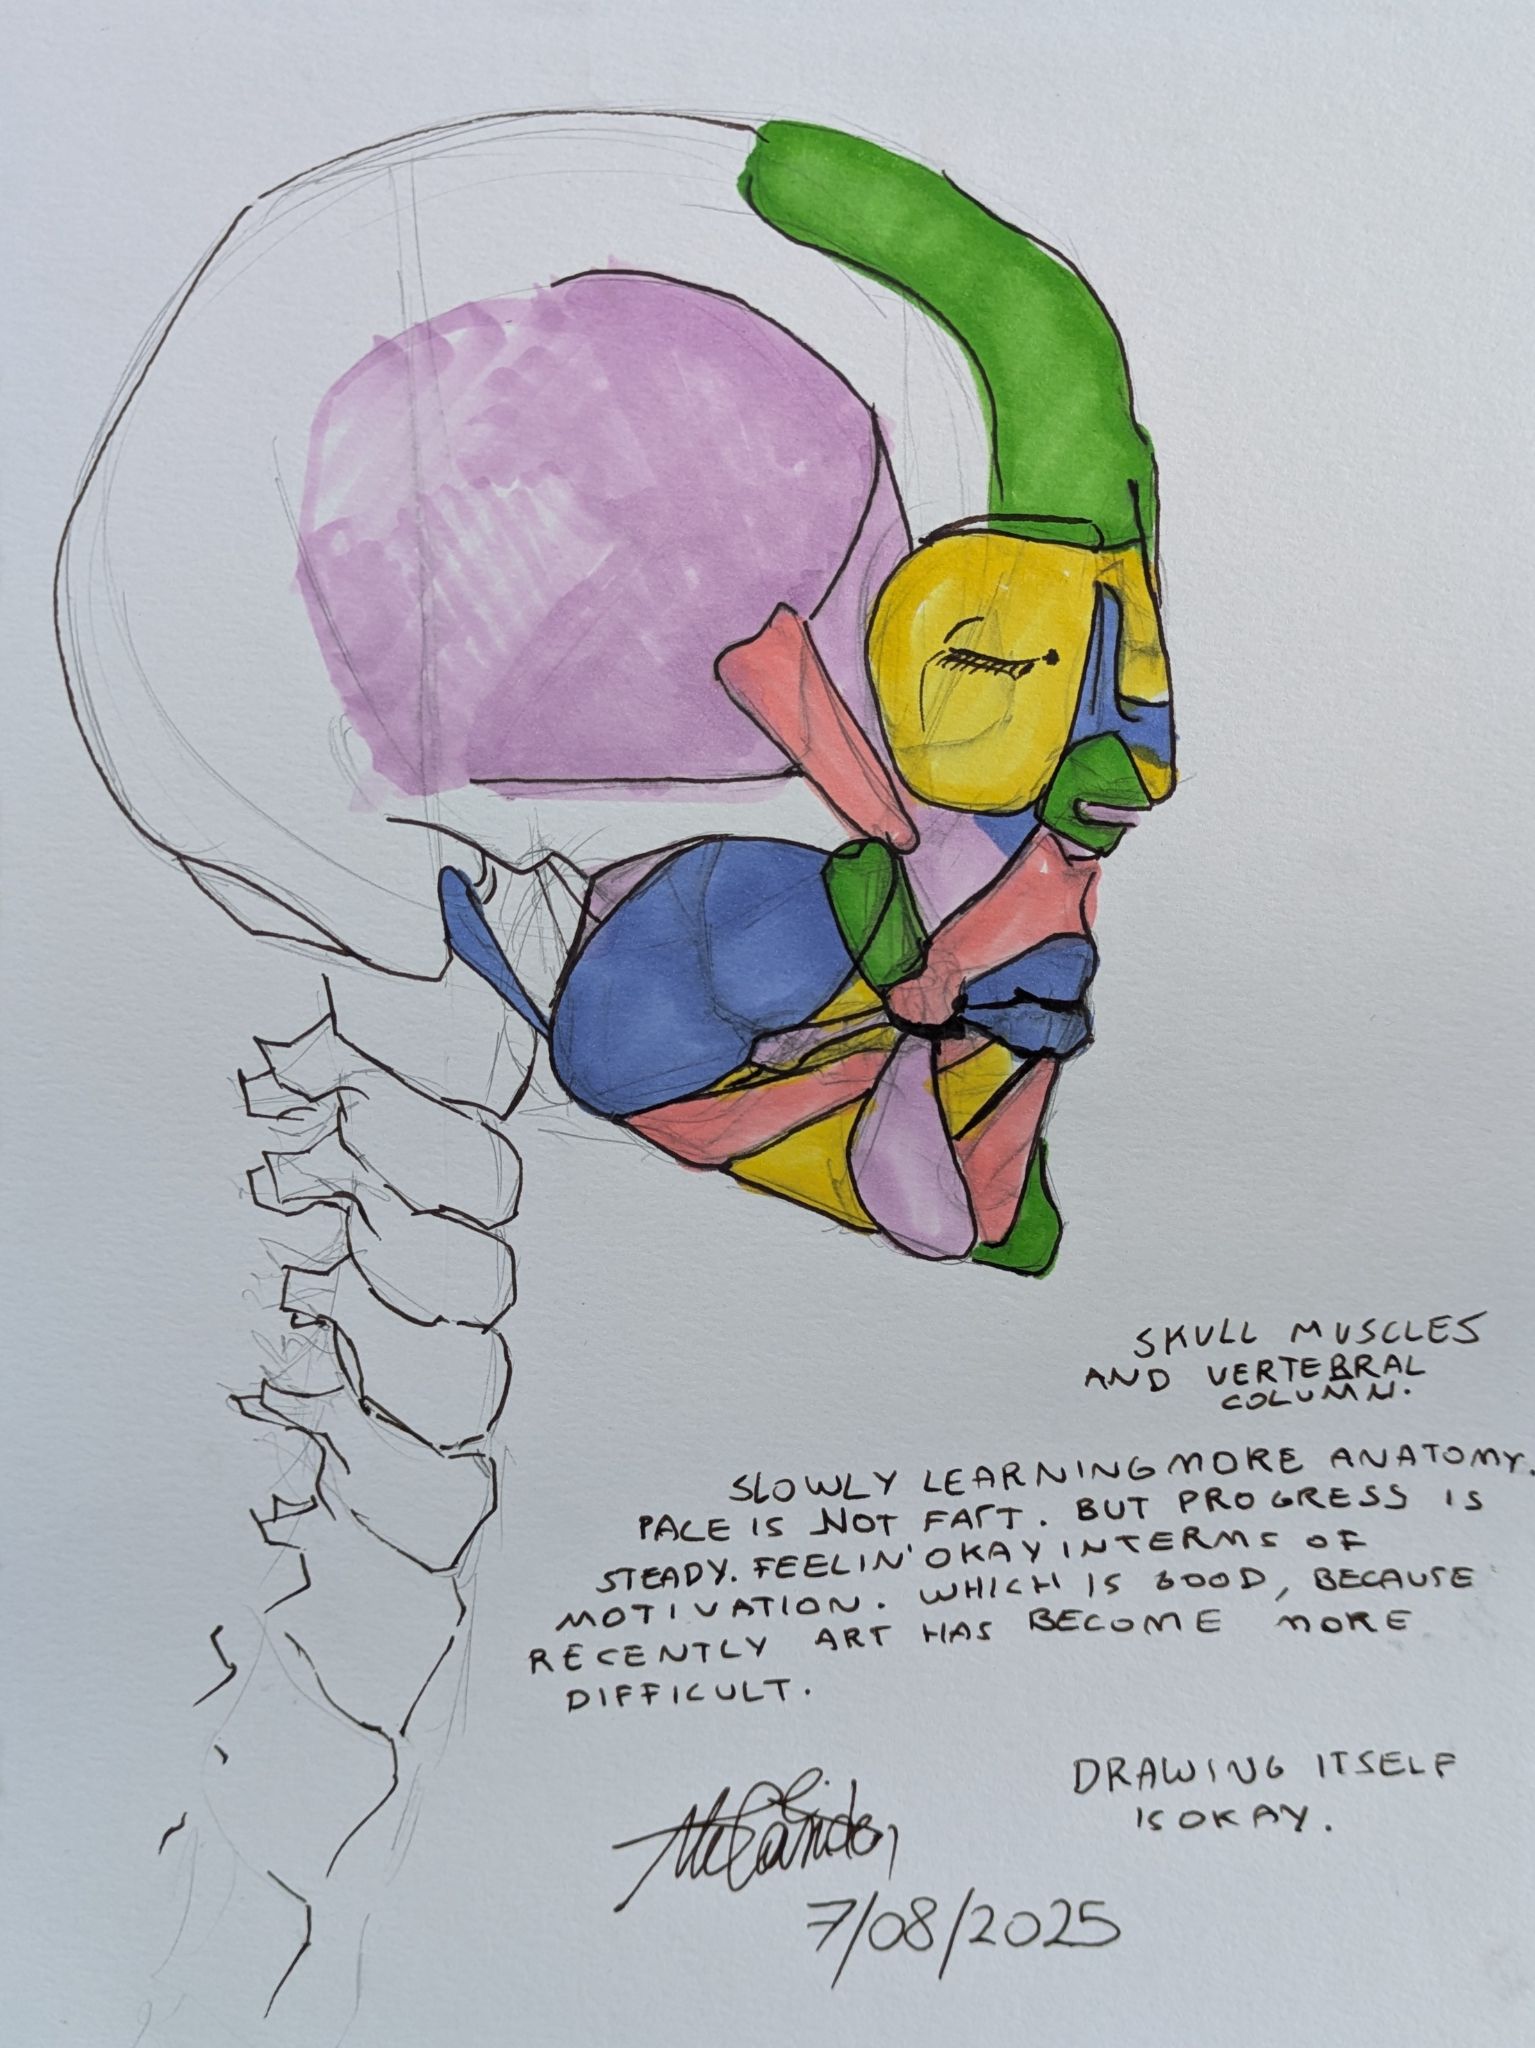 SKULL MUSCLES
AND VERTEBRAL
COLUMN.
SLOWLY LEARNING MORE ANATOMY.
PACE IS NOT FAST. BUT PROGRESS IS
STEADY. FEELIN' OKAY IN TERMS OF
MOTIVATION. WHICH IS GOOD, BECAUSE
RECENTLY ART HAS BECOME MORE
DIFFICULT.
DRAWING ITSELF
IS OKAY.
7/08/2025